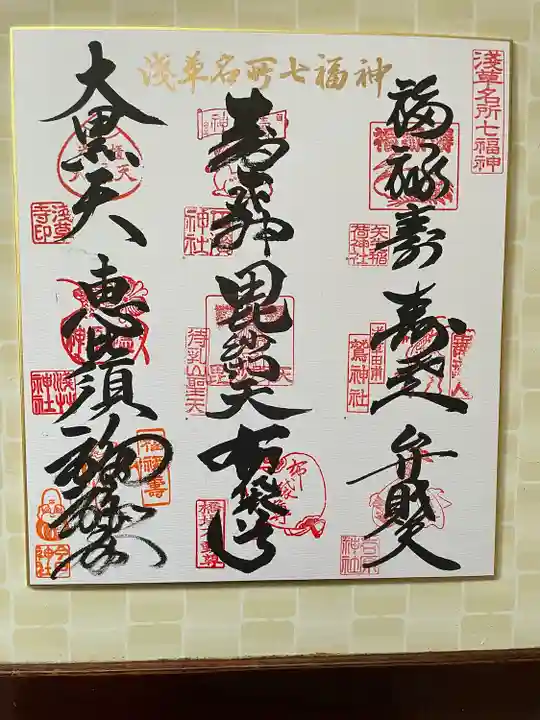 浅草名所七福神
浅草名所七福神
大黒天
浅草
寺印
恵比須
浅草
神社
福禄寿
今戸
神社
寿老神
神社
毘沙門天
待乳山聖天
布袋尊
布袋尊
福禄寿
矢先稲
荷神社
寿老人
鷲神社
弁財天
吉原
神社